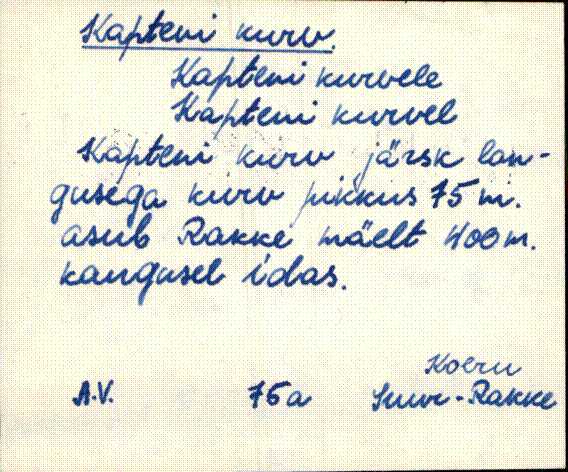 Kapteni kurv.
Kapteni kurvele
Kapteni kurvel
Kapteni kurv järsk lan-
gusega kurv pikkus 75 m.
asub Rakke mäelt 400 m.
kaugusel idas.
Koeru
A.V. 75a Suur-Rakke